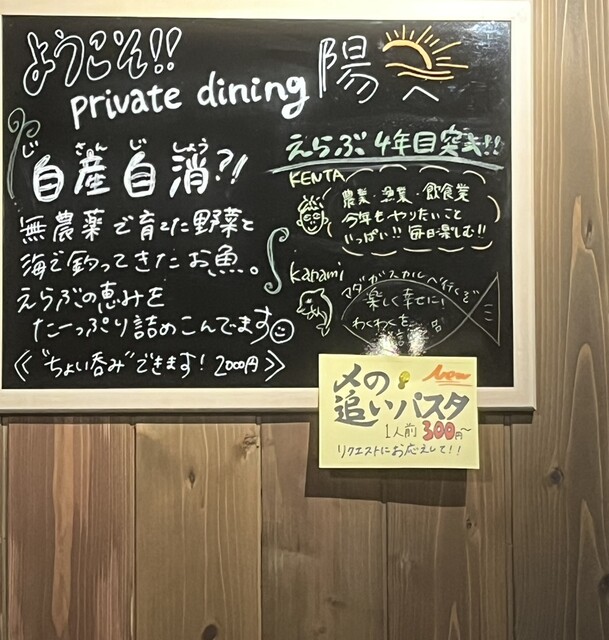 ようこそ!!
private dining 陽へ
じ さん じ しょう
自産自消?!
無農薬で育てた野菜と
海で釣ってきたお魚。
えらぶの恵みを
たーっぷり詰めこんでます
《"ちょい呑み"できます! 2000円》
えらぶ4年目突入!!
KENTA
農業・漁業・飲食業
今年もやりたいこと
いっぱい!! 毎日楽しむ!!
kanami
マダガスカルへ行くぞ
楽しく幸せに!
わくわくを
〆の New
追いパスタ
1人前 300円~
リクエストにお応えして!!